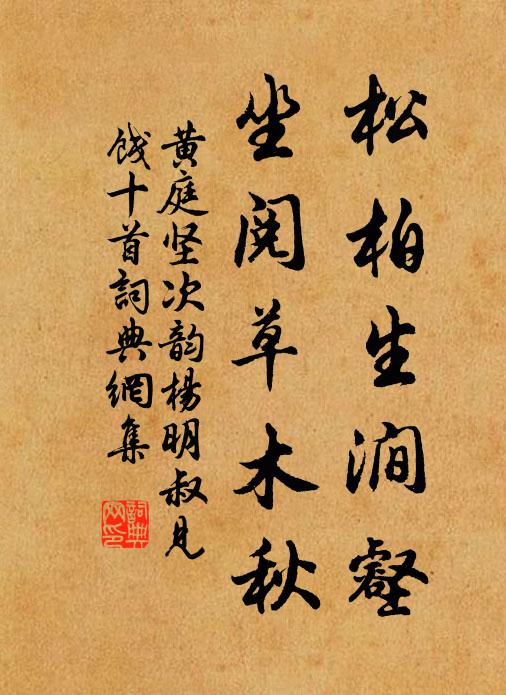 松柏生涧壑
坐阅草木秋
黄庭坚次韵杨明叔见
饯十首詞典網集
詞典网印